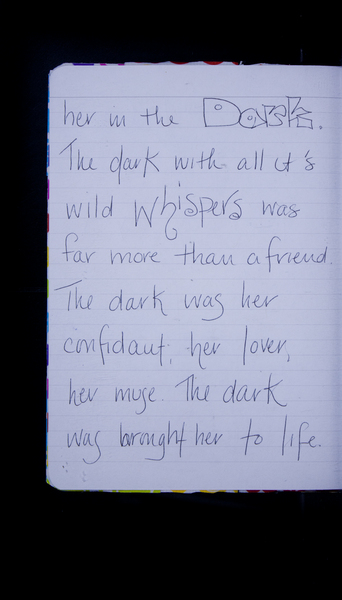 her in the Dark.
The dark with all it's
wild whispers was
far more than a friend.
The dark was her
confidant, her lover,
her muse. The dark
was brought her to life.